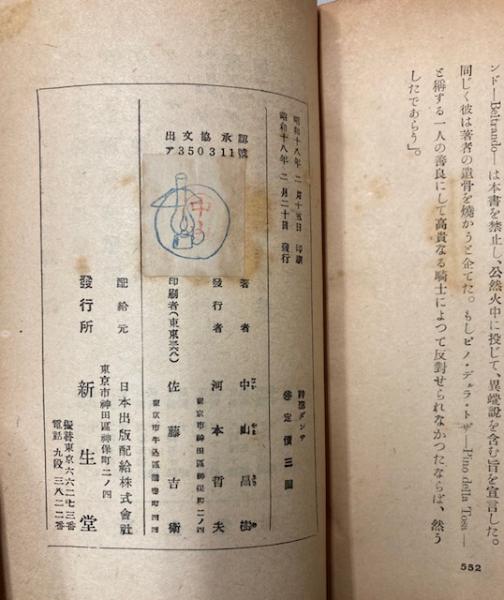 ンド—Beltrando—は本書を禁止し、公然火中に投じて、異端說を含む旨を宣言した。
同じく彼は著者の遺骨を燒かうと企てた。もしピノ・デルラ・トザ—Pino della Tosa—
と稱する一人の善良にして高貴なる騎士によつて反對せられなかつたならば、然う
したであらう」。
552
昭和十八年二月十五日印刷
昭和十八年二月二十日發行
出文協承認
ア350311號
詩聖ダンテ
定價三圓
著者 中山昌樹
東京市神田區神保町二ノ四
發行者 河本哲夫
印刷者(東東三六八) 佐藤吉衛
配給元 日本出版配給株式會社
東京市神田區神保町二ノ四
發行所 新生堂
振替東京六六二七三番
電話九段三八二二番